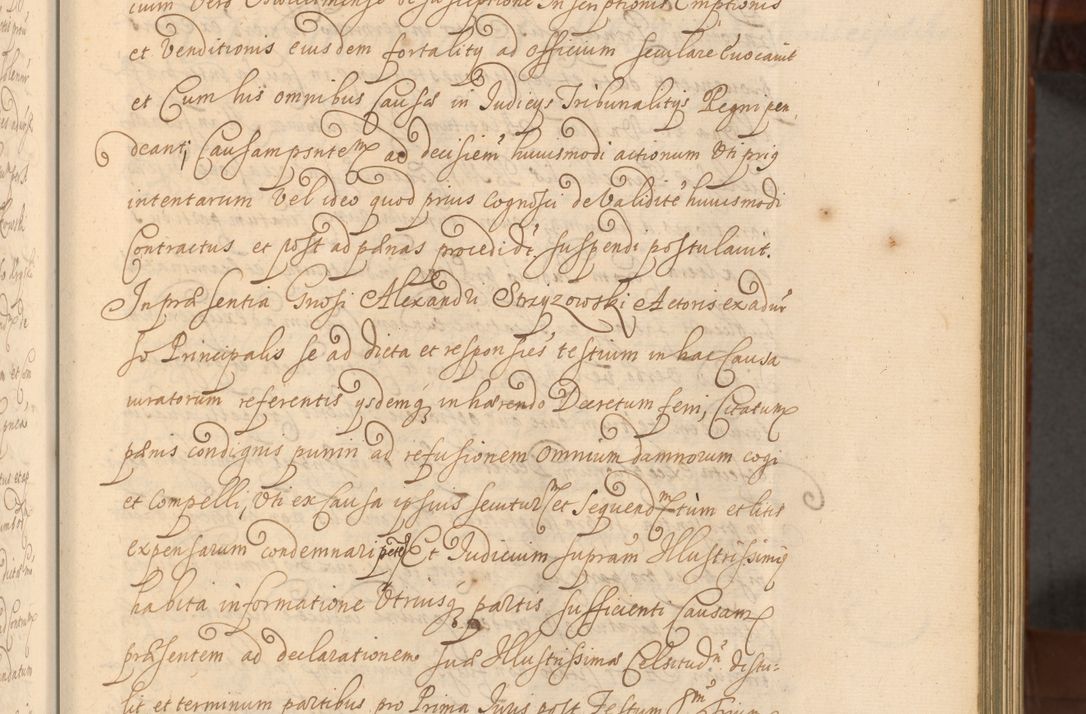 et Venditionis eiusdem fortality ad officium seculare Evocavit
et Cum his omnibus Causa in Judicys Tribunalitys Regni pen,
deant; Causam psntem ad decisiem huiusmodi actionum Uti prig
intentarum Vel ideo quod prius Cognosci de Validite huiusmodi
Contractus et post ad pænas procedi dt. suspendi postulavit.
In præsentia Gnosi Alexandri Strzyzowski Actoris ex adur
so Principalis se ad dicta et responsies testium in hac Causa
iuratorum referentis ysdemq inhærendo Decretum ferri, Citatum
pænis condignis puniri ad refusionem omnium damnorum cogi
et compelli, Uti ex Causa ipsius secutur et Sequend tum et litis
expensarum condemnari petet Et Judicium supram Illustrissimus
habita informatione Utriusq partis sufficienti Causam
præsentem ad declarationem Suæ Illustrissimæ Celsitudn distu-
lit et terminum partibus pro Prima Juris post Festum Ssm